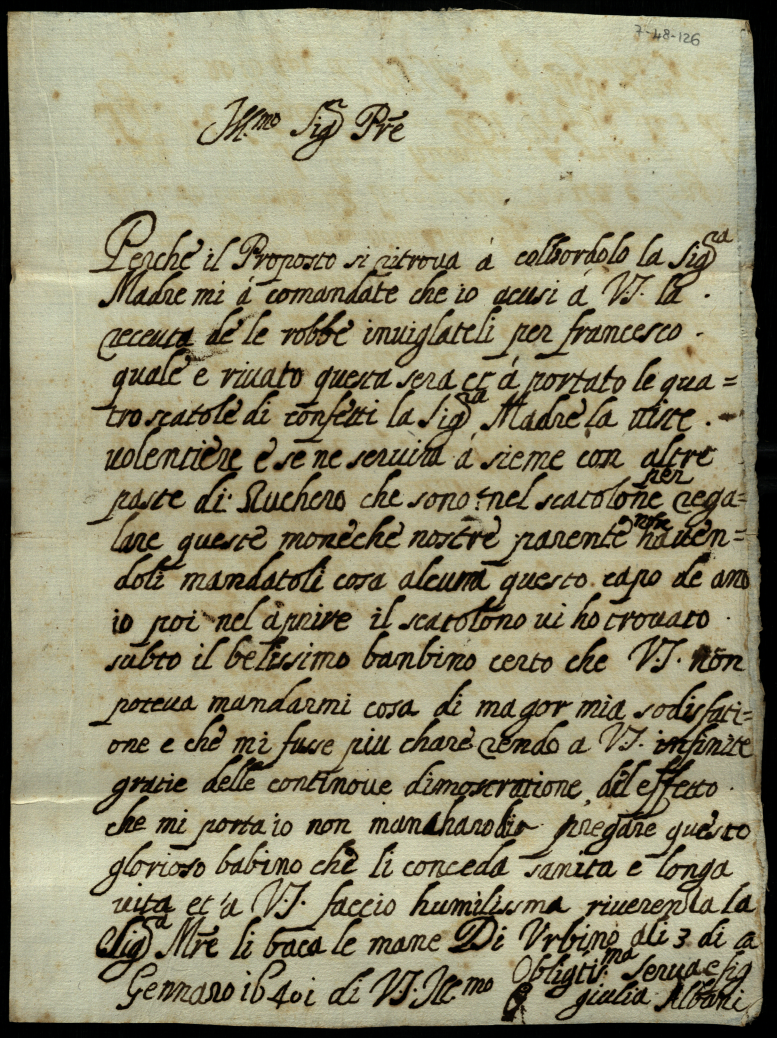 7-48-126
Ill.mo Sig.r Pre
Perche il Proposto si ritrova á colbordolo la Sig.ra
Madre mi á comandate che io acusi á V.I. la
receuta de le robbe inuiglateli per francesco
quale e riuato questa sera et á portato le qua=
tro scatole di confetti la Sig.a Madre la viste
volentiere e se ne seruira á sieme con altre
paste di Zuchero che sono nel scatolone per rega=
lare queste moneche nostre parente non hauen=
doli mandatoli cosa alcuna questo capo de ano
io poi nel aprire il scatolono ui ho trouato
subto il belissimo banbino certo che V.I. non
poteua mandarmi cosa di magor mia sodisfati=
one e che mi fusse piu chare rendo a V.I. infinite
gratie delle continoue dimostratione del effetto
che mi porta io non mancharo di pregare questo
glorioso babino che li conceda sanita e longa
vita et a V.I. faccio humilissma riuerenza la
Sig.a Mre li baca le mane Di Vrbino ali 3 di
Gennaro 1640i di V.I. Ill.mo Obligtis.ma serua e fig
giulia Albani